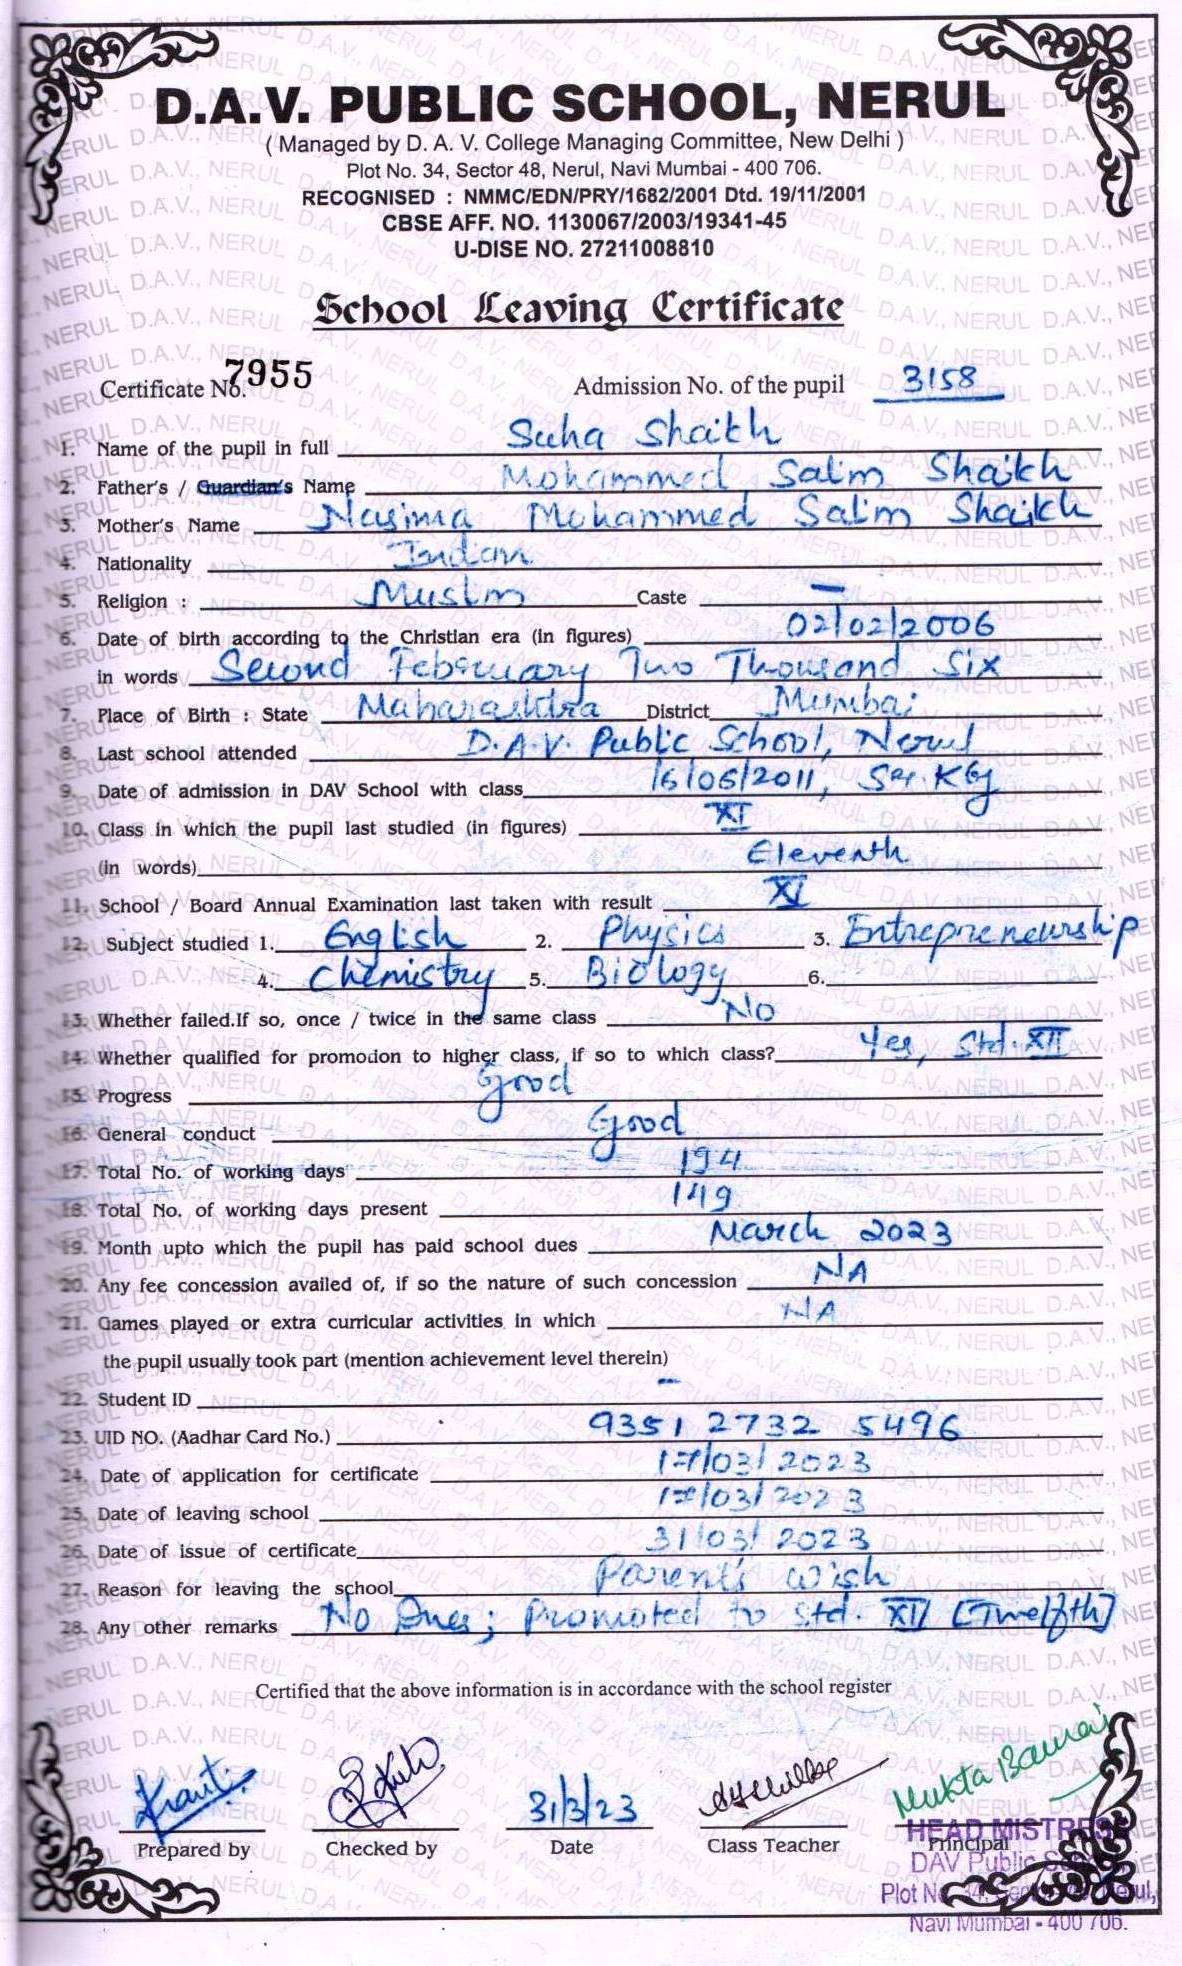 D.A.V. PUBLIC SCHOOL, NERUL
( Managed by D. A. V. College Managing Committee, New Delhi )
Plot No. 34, Sector 48, Nerul, Navi Mumbai - 400 706.
RECOGNISED : NMMC/EDN/PRY/1682/2001 Dtd. 19/11/2001
CBSE AFF. NO. 1130067/2003/19341-45
U-DISE NO. 27211008810
School Leaving Certificate
Certificate No. 7955 Admission No. of the pupil 3158
1. Name of the pupil in full Suha Shaikh
2. Father's / Guardian's Name Mohammed Salim Shaikh
3. Mother's Name Nasima Mohammed Salim Shaikh
4. Nationality Indian
5. Religion : Muslim Caste —
6. Date of birth according to the Christian era (in figures) 02/02/2006
in words Second February Two Thousand Six
7. Place of Birth : State Maharashtra District Mumbai
8. Last school attended D.A.V. Public School, Nerul
9. Date of admission in DAV School with class 16/06/2011, Sr. KG
10. Class in which the pupil last studied (in figures) XI
(in words) Eleventh
11. School / Board Annual Examination last taken with result XI
12. Subject studied 1. English 2. Physics 3. Entrepreneurship
4. Chemistry 5. Biology 6.
13. Whether failed.If so, once / twice in the same class NO
14. Whether qualified for promotion to higher class, if so to which class? Yes, Std. XII
15. Progress Good
16. General conduct Good
17. Total No. of working days 194
18. Total No. of working days present 149
19. Month upto which the pupil has paid school dues March 2023
20. Any fee concession availed of, if so the nature of such concession NA
21. Games played or extra curricular activities in which NA
the pupil usually took part (mention achievement level therein)
22. Student ID –
23. UID NO. (Aadhar Card No.) 9351 2732 5496
24. Date of application for certificate 17/03/2023
25. Date of leaving school 17/03/2023
26. Date of issue of certificate 31/03/2023
27. Reason for leaving the school Parent's wish
28. Any other remarks No Dues; Promoted to Std. XII [Twelfth]
Certified that the above information is in accordance with the school register
31/3/23 Mukta
Prepared by Checked by Date Class Teacher Principal
HEAD MISTRESS
DAV Public School
Plot No. 34, Nerul,
Navi Mumbai - 400 706.